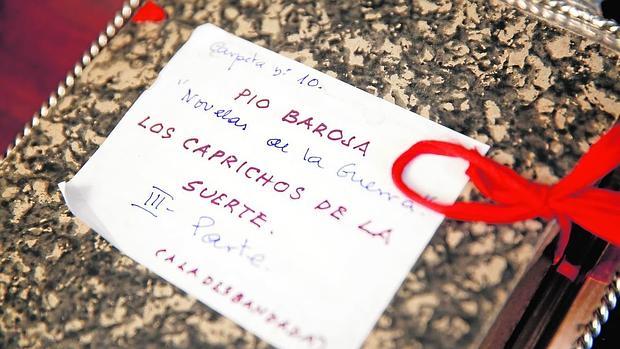 Carpeta nº 10.
PIO BAROJA
"Novelas de la Guerra".
LOS CAPRICHOS DE LA
SUERTE.
III- Parte.
(A LA DESBANDADA)